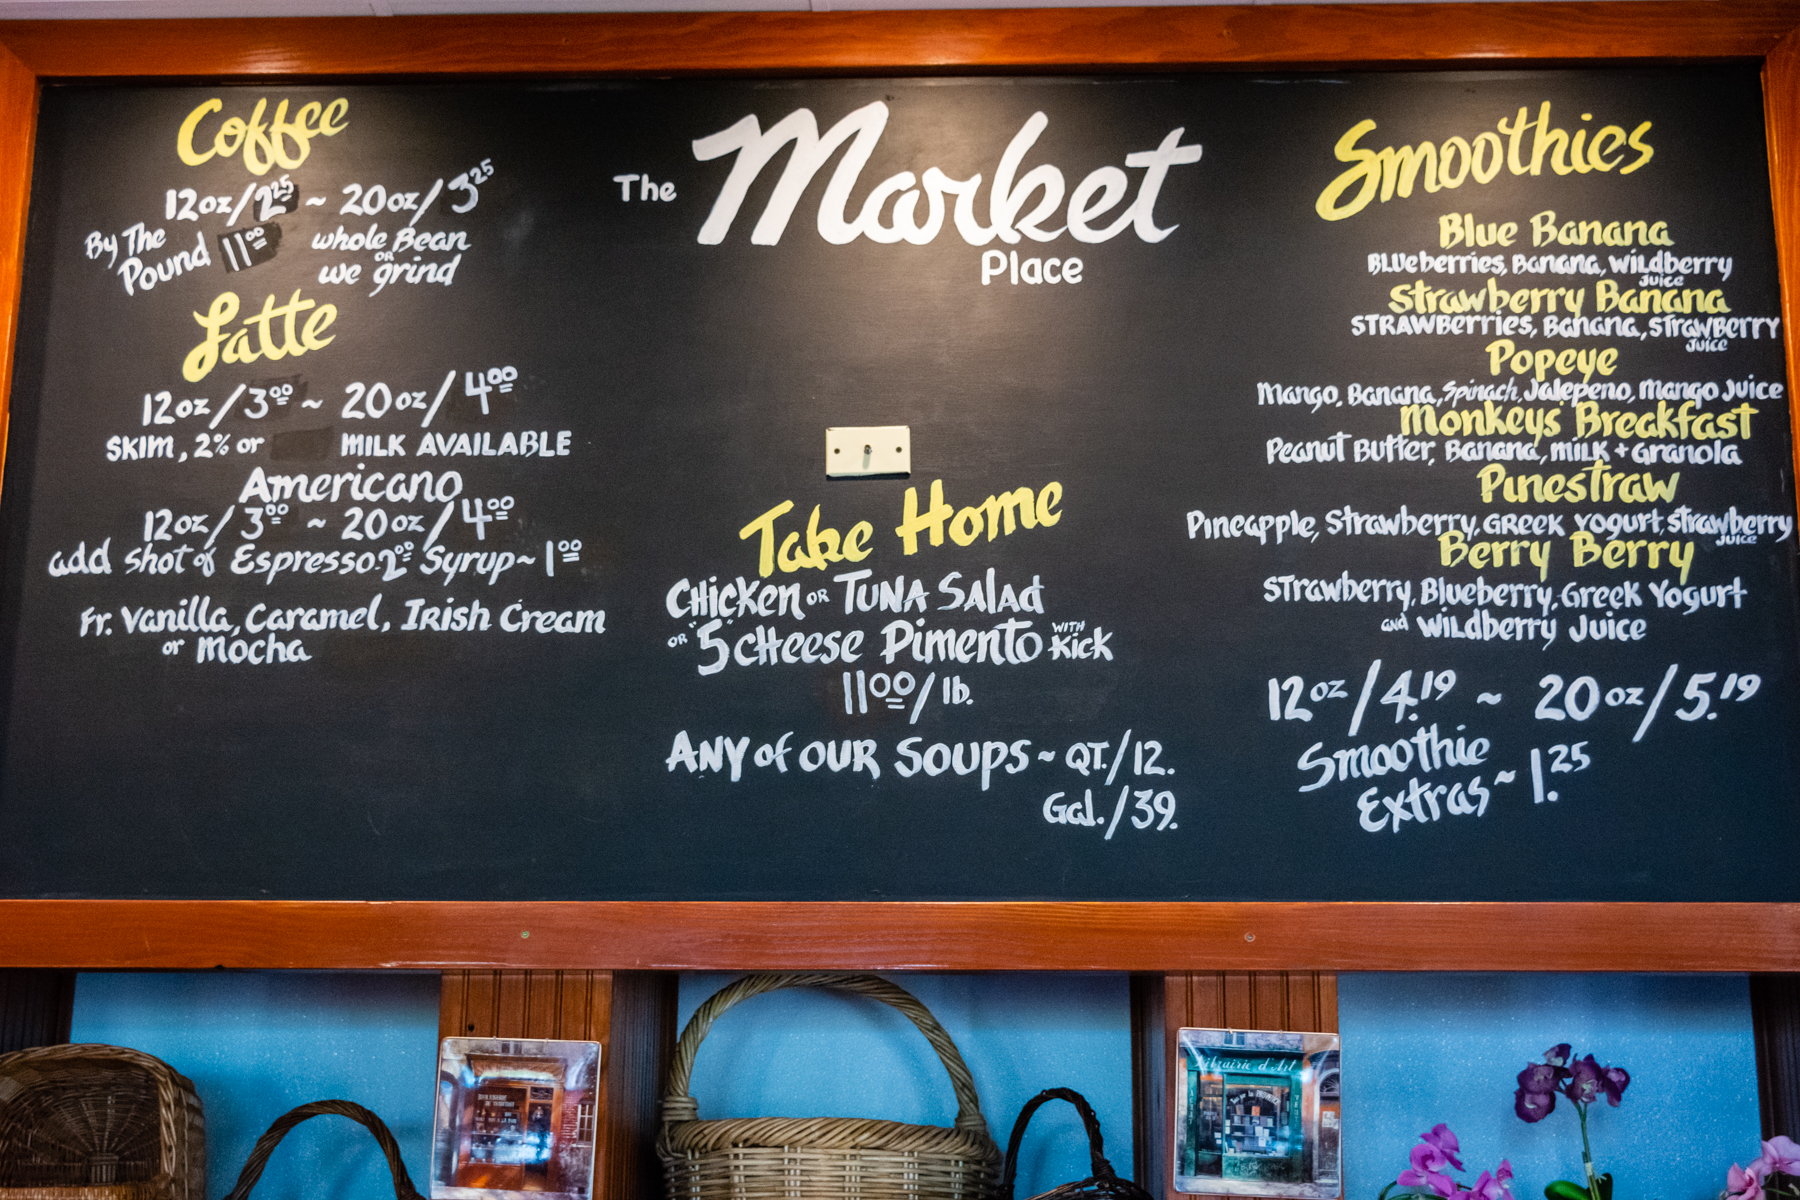 The Market
Place
Coffee
12oz/2.25 ~ 20oz/3.25
By The Pound 11.00 whole Bean
OR
we grind
Latte
12oz/3.00 ~ 20oz/4.00
SKIM, 2% or MILK AVAILABLE
Americano
12oz/3.00 ~ 20oz/4.00
add shot of Espresso 2.00 Syrup ~ 1.00
Fr. Vanilla, Caramel, Irish Cream
or Mocha
Take Home
CHicken OR TUNA Salad
OR "5" CHeese Pimento WITH Kick
11.00/lb.
ANY of OUR Soups ~ QT./12.
Gal./39.
Smoothies
Blue Banana
BLUeberries, Banana, Wildberry
Juice
Strawberry Banana
STRAWBerries, Banana, STrawBerry
Juice
Popeye
Mango, Banana, Spinach, Jalepeno, Mango Juice
Monkeys Breakfast
Peanut Butter, Banana, milk + Granola
PinesTraw
Pineapple, Strawberry, Greek Yogurt, Strawberry
Juice
Berry Berry
STrawberry, Blueberry, Greek Yogurt
and Wildberry Juice
12oz/4.19 ~ 20oz/5.19
Smoothie
Extras ~ 1.25
Librairie d'Art